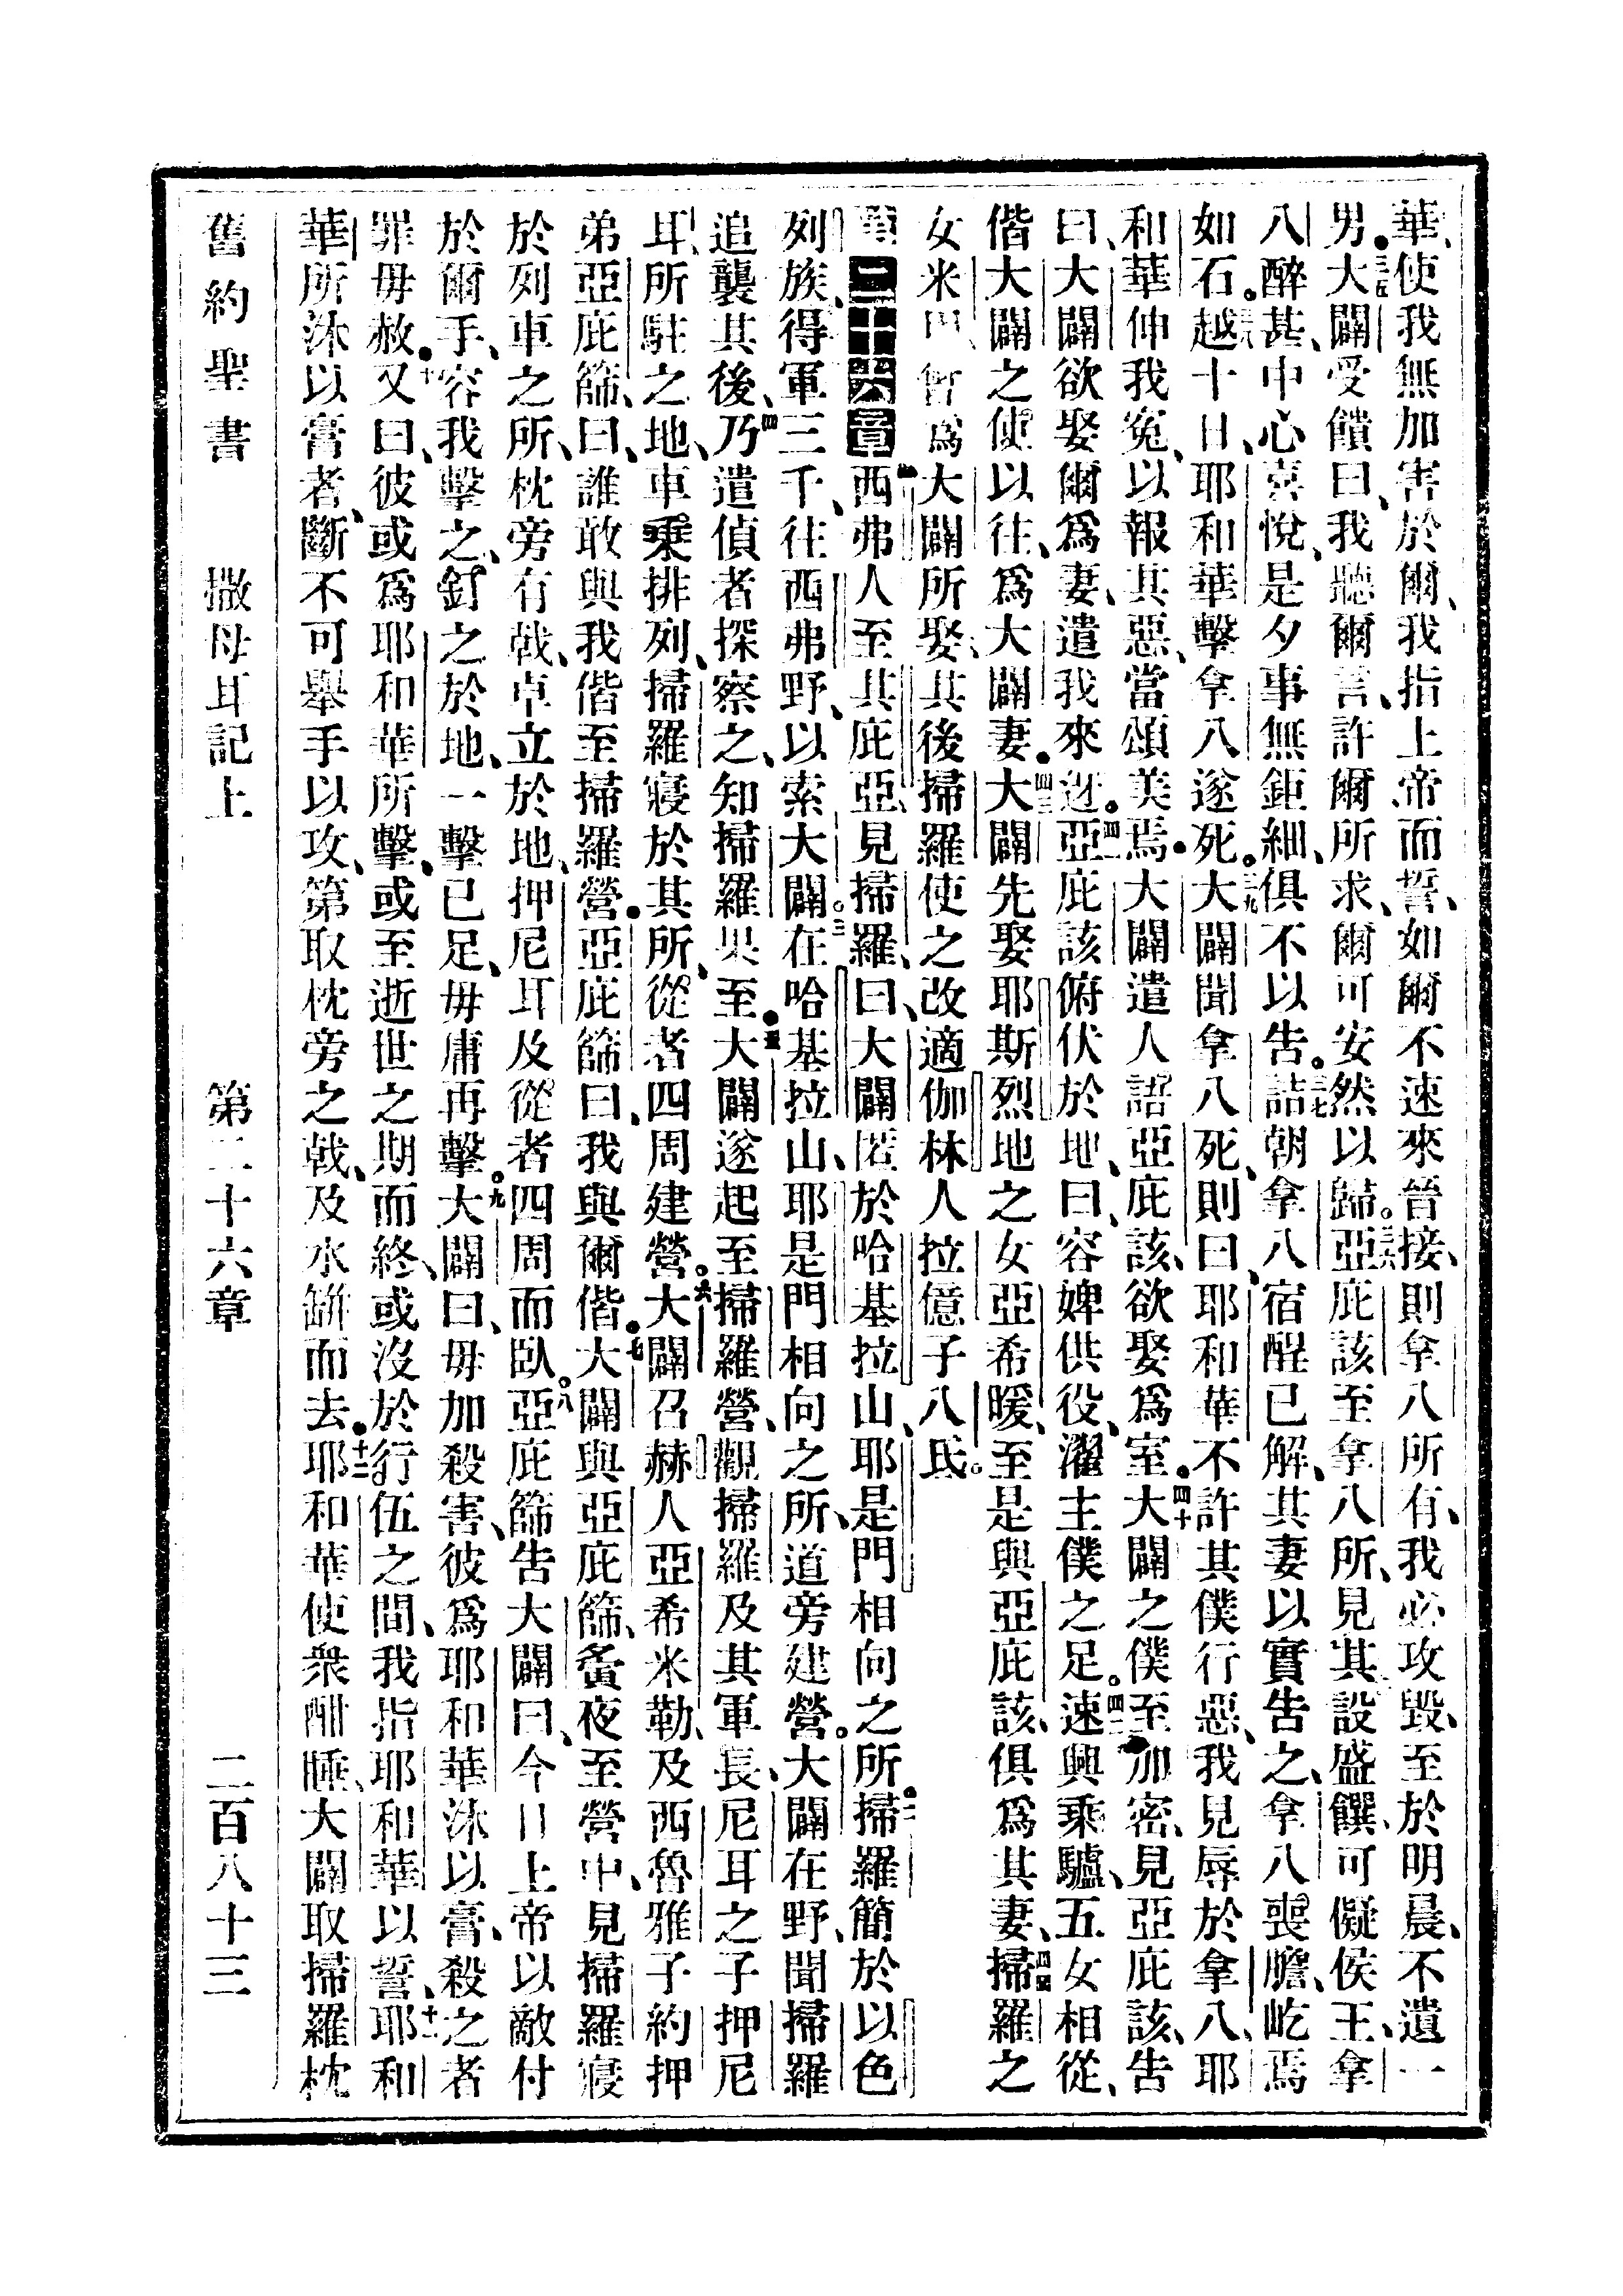 華、使我無加害於爾、我指上帝而誓、如爾不速來晉接、則拿八所有、我必攻毀、至於明晨、不遺一
男。三五大闢受饋曰、我聽爾言、許爾所求、爾可安然以歸。三六亞庇該至拿八所、見其設盛饌、可儗侯王、拿
八醉甚、中心喜悅、是夕事無鉅細、俱不以告。三七詰朝拿八宿酲已解、其妻以實告之、拿八喪膽、屹焉
如石。三八越十日、耶和華擊拿八遂死。三九大闢聞拿八死、則曰、耶和華不許其僕行惡、我見辱於拿八、耶
和華伸我冤、以報其惡、當頌美焉。大闢遣人語亞庇該、欲娶爲室。四十大闢之僕至加密、見亞庇該、告
曰、大闢欲娶爾爲妻、遣我來迓。四一亞庇該俯伏於地、曰、容婢供役、濯主僕之足。四二速興乘驢、五女相從、
偕大闢之使以往、爲大闢妻。四三大闢先娶耶斯烈地之女亞希暖、至是與亞庇該、俱爲其妻、四四掃羅之
女米甲、暫爲大闢所娶、其後掃羅使之改適伽林人拉億子八氏。
第二十六章 一西弗人至其庇亞、見掃羅、曰、大闢匿於哈基拉山、耶是門相向之所。二掃羅簡於以色
列族、得軍三千、往西弗野、以索大闢。三在哈基拉山、耶是門相向之所、道旁建營。大闢在野、聞掃羅
追襲其後、四乃遣偵者探察之、知掃羅果至。五大闢遂起至掃羅營、觀掃羅及其軍長、尼耳之子押尼
耳、所駐之地、車乘排列、掃羅寢於其所、從者四周建營。六大闢召赫人亞希米勒、及西魯雅子約押
弟亞庇篩、曰、誰敢與我偕至掃羅營。亞庇篩曰、我與爾偕。七大闢與亞庇篩、夤夜至營中、見掃羅寢
於列車之所、枕旁有戟、卓立於地、押尼耳及從者四周而臥。八亞庇篩告大闢曰、今日上帝以敵付
於爾手、容我擊之、釘之於地、一擊已足、毋庸再擊。九大闢曰、毋加殺害、彼爲耶和華沐以膏、殺之者
罪毋赦。十又曰、彼或爲耶和華所擊、或至逝世之期而終、或沒於行伍之間、我指耶和華以誓、十一耶和
華所沐以膏者、斷不可舉手以攻、第取枕旁之戟、及水缾而去。十二耶和華使衆酣睡、大闢取掃羅枕
舊約聖書 撒母耳記上 第二十六章 二百八十三